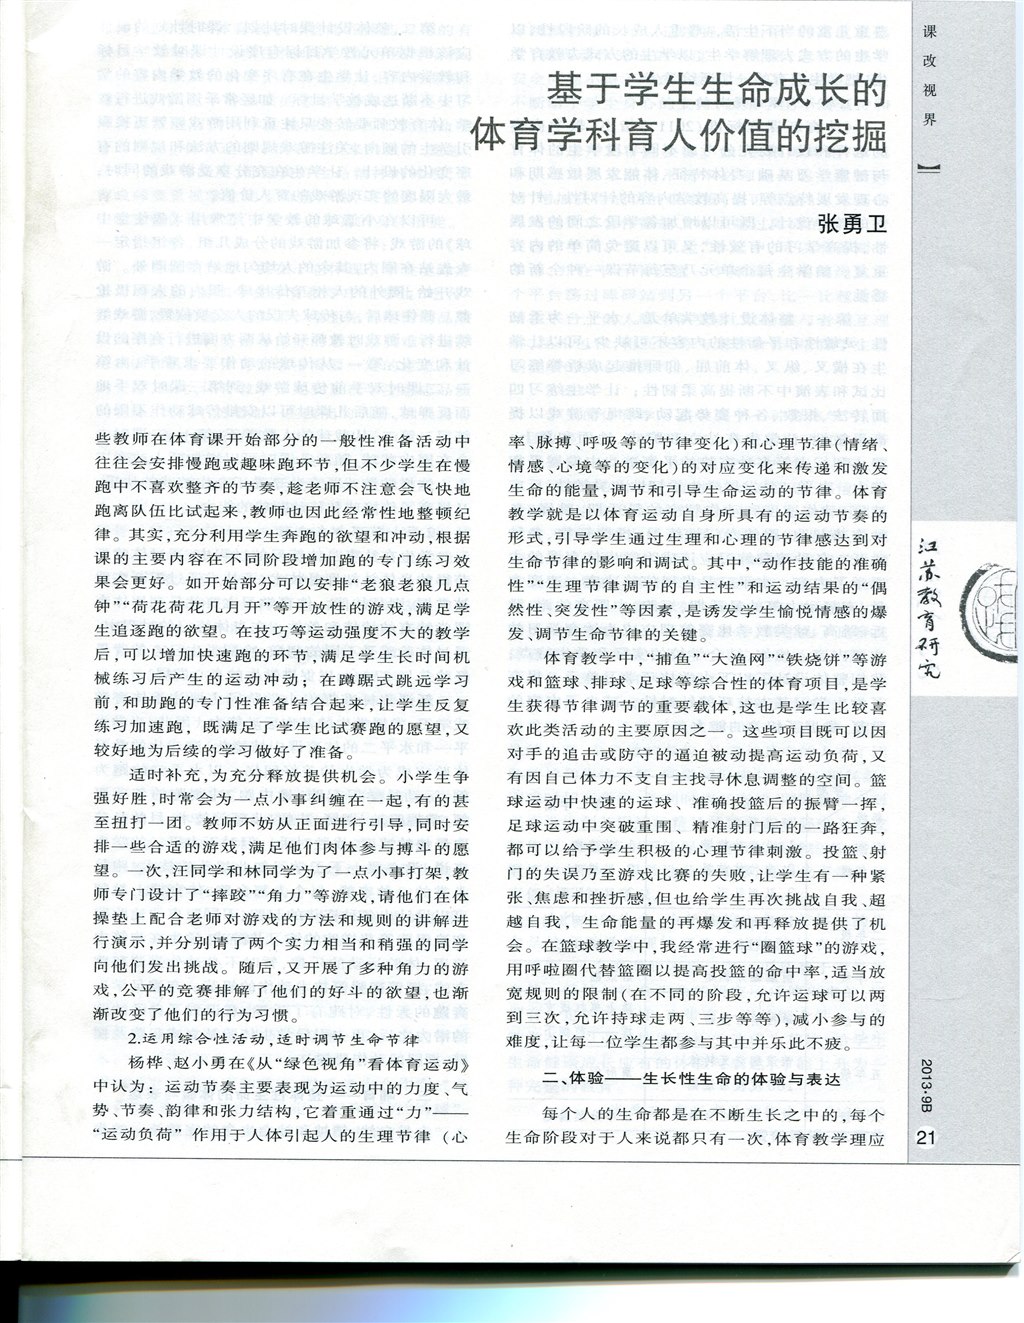 课改视界
基于学生生命成长的
体育学科育人价值的挖掘
张勇卫
些教师在体育课开始部分的一般性准备活动中
往往会安排慢跑或趣味跑环节,但不少学生在慢
跑中不喜欢整齐的节奏,趁老师不注意会飞快地
跑离队伍比试起来,教师也因此经常性地整顿纪
律。其实,充分利用学生奔跑的欲望和冲动,根据
课的主要内容在不同阶段增加跑的专门练习效
果会更好。如开始部分可以安排“老狼老狼几点
钟”“荷花荷花几月开”等开放性的游戏,满足学
生追逐跑的欲望。在技巧等运动强度不大的教学
后,可以增加快速跑的环节,满足学生长时间机
械练习后产生的运动冲动；在蹲踞式跳远学习
前,和助跑的专门性准备结合起来,让学生反复
练习加速跑，既满足了学生比试赛跑的愿望,又
较好地为后续的学习做好了准备。
适时补充,为充分释放提供机会。小学生争
强好胜,时常会为一点小事纠缠在一起,有的甚
至扭打一团。教师不妨从正面进行引导,同时安
排一些合适的游戏,满足他们肉体参与搏斗的愿
望。一次,汪同学和林同学为了一点小事打架,教
师专门设计了“摔跤”“角力”等游戏,请他们在体
操垫上配合老师对游戏的方法和规则的讲解进
行演示,并分别请了两个实力相当和稍强的同学
向他们发出挑战。随后,又开展了多种角力的游
戏,公平的竞赛排解了他们的好斗的欲望,也渐
渐改变了他们的行为习惯。
2.运用综合性活动,适时调节生命节律
杨桦、赵小勇在《从“绿色视角”看体育运动》
中认为：运动节奏主要表现为运动中的力度、气
势、节奏、韵律和张力结构,它着重通过“力”——
“运动负荷”作用于人体引起人的生理节律（心
率、脉搏、呼吸等的节律变化)和心理节律(情绪、
情感、心境等的变化)的对应变化来传递和激发
生命的能量,调节和引导生命运动的节律。体育
教学就是以体育运动自身所具有的运动节奏的
形式,引导学生通过生理和心理的节律感达到对
生命节律的影响和调试。其中,“动作技能的准确
性”“生理节律调节的自主性”和运动结果的“偶
然性、突发性”等因素,是诱发学生愉悦情感的爆
发、调节生命节律的关键。
体育教学中,“捕鱼”“大渔网”“铁烧饼”等游
戏和篮球、排球、足球等综合性的体育项目,是学
生获得节律调节的重要载体,这也是学生比较喜
欢此类活动的主要原因之一。这些项目既可以因
对手的追击或防守的逼迫被动提高运动负荷,又
有因自己体力不支自主找寻休息调整的空间。篮
球运动中快速的运球、准确投篮后的振臂一挥,
足球运动中突破重围、精准射门后的一路狂奔,
都可以给予学生积极的心理节律刺激。投篮、射
门的失误乃至游戏比赛的失败,让学生有一种紧
张、焦虑和挫折感,但也给学生再次挑战自我、超
越自我，生命能量的再爆发和再释放提供了机
会。在篮球教学中,我经常进行“圈篮球”的游戏,
用呼啦圈代替篮圈以提高投篮的命中率,适当放
宽规则的限制(在不同的阶段,允许运球可以两
到三次,允许持球走两、三步等等),减小参与的
难度,让每一位学生都参与其中并乐此不疲。
二、体验——生长性生命的体验与表达
每个人的生命都是在不断生长之中的,每个
生命阶段对于人来说都只有一次,体育教学理应
江苏教育研究
2013·9B
21